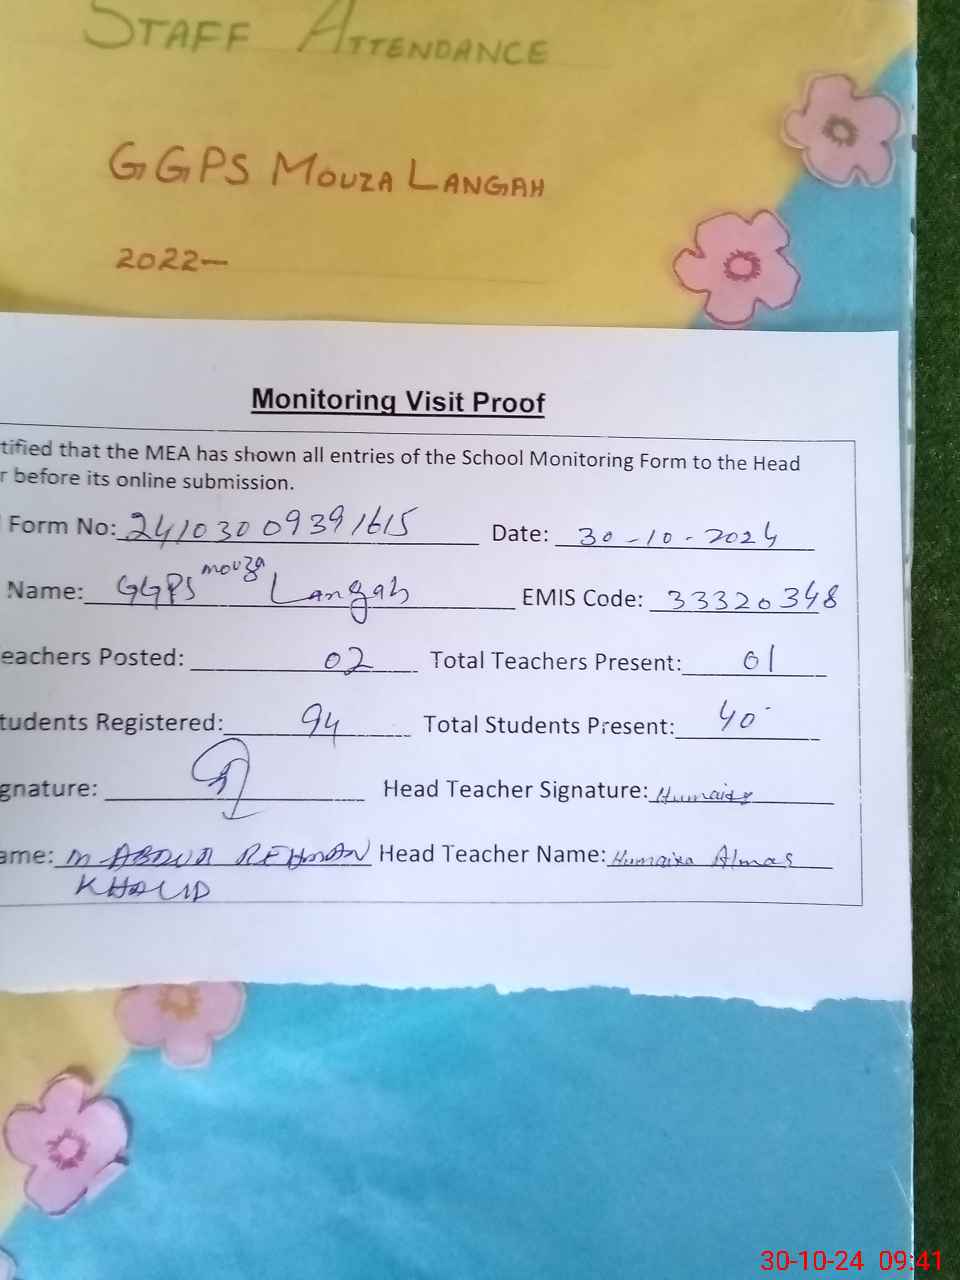 STAFF ATTENDANCE
GGPS MOUZA LANGAH
2022—
Monitoring Visit Proof
tified that the MEA has shown all entries of the School Monitoring Form to the Head
r before its online submission.
Form No: 24103009391615 Date: 30-10-2024
Name: GGPS mouza Langah EMIS Code: 33320348
eachers Posted: 02 Total Teachers Present: 01
tudents Registered: 94 Total Students Present: 40
gnature: Head Teacher Signature: Humaira
ame: M ABDUR REHMAN Head Teacher Name: Humaira Almas
KHALID
30-10-24 09:41